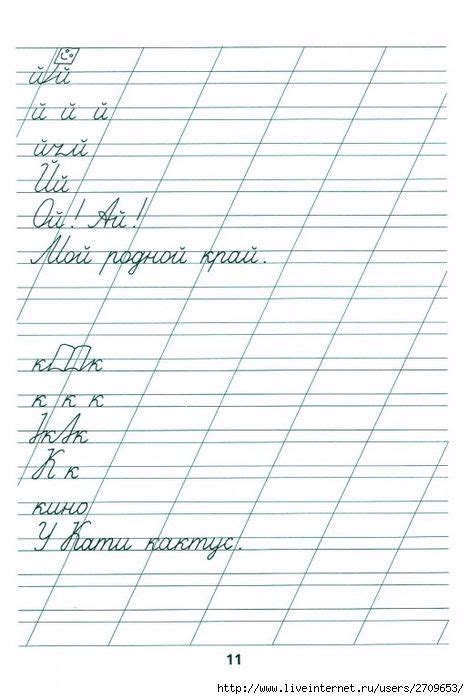 й й
й й й
й й
Й й
Ой! Ай!
Мой родной край.
к к
к к к
к к
К к
кино
У Кати кактус.
11
http://www.liveinternet.ru/users/2709653/